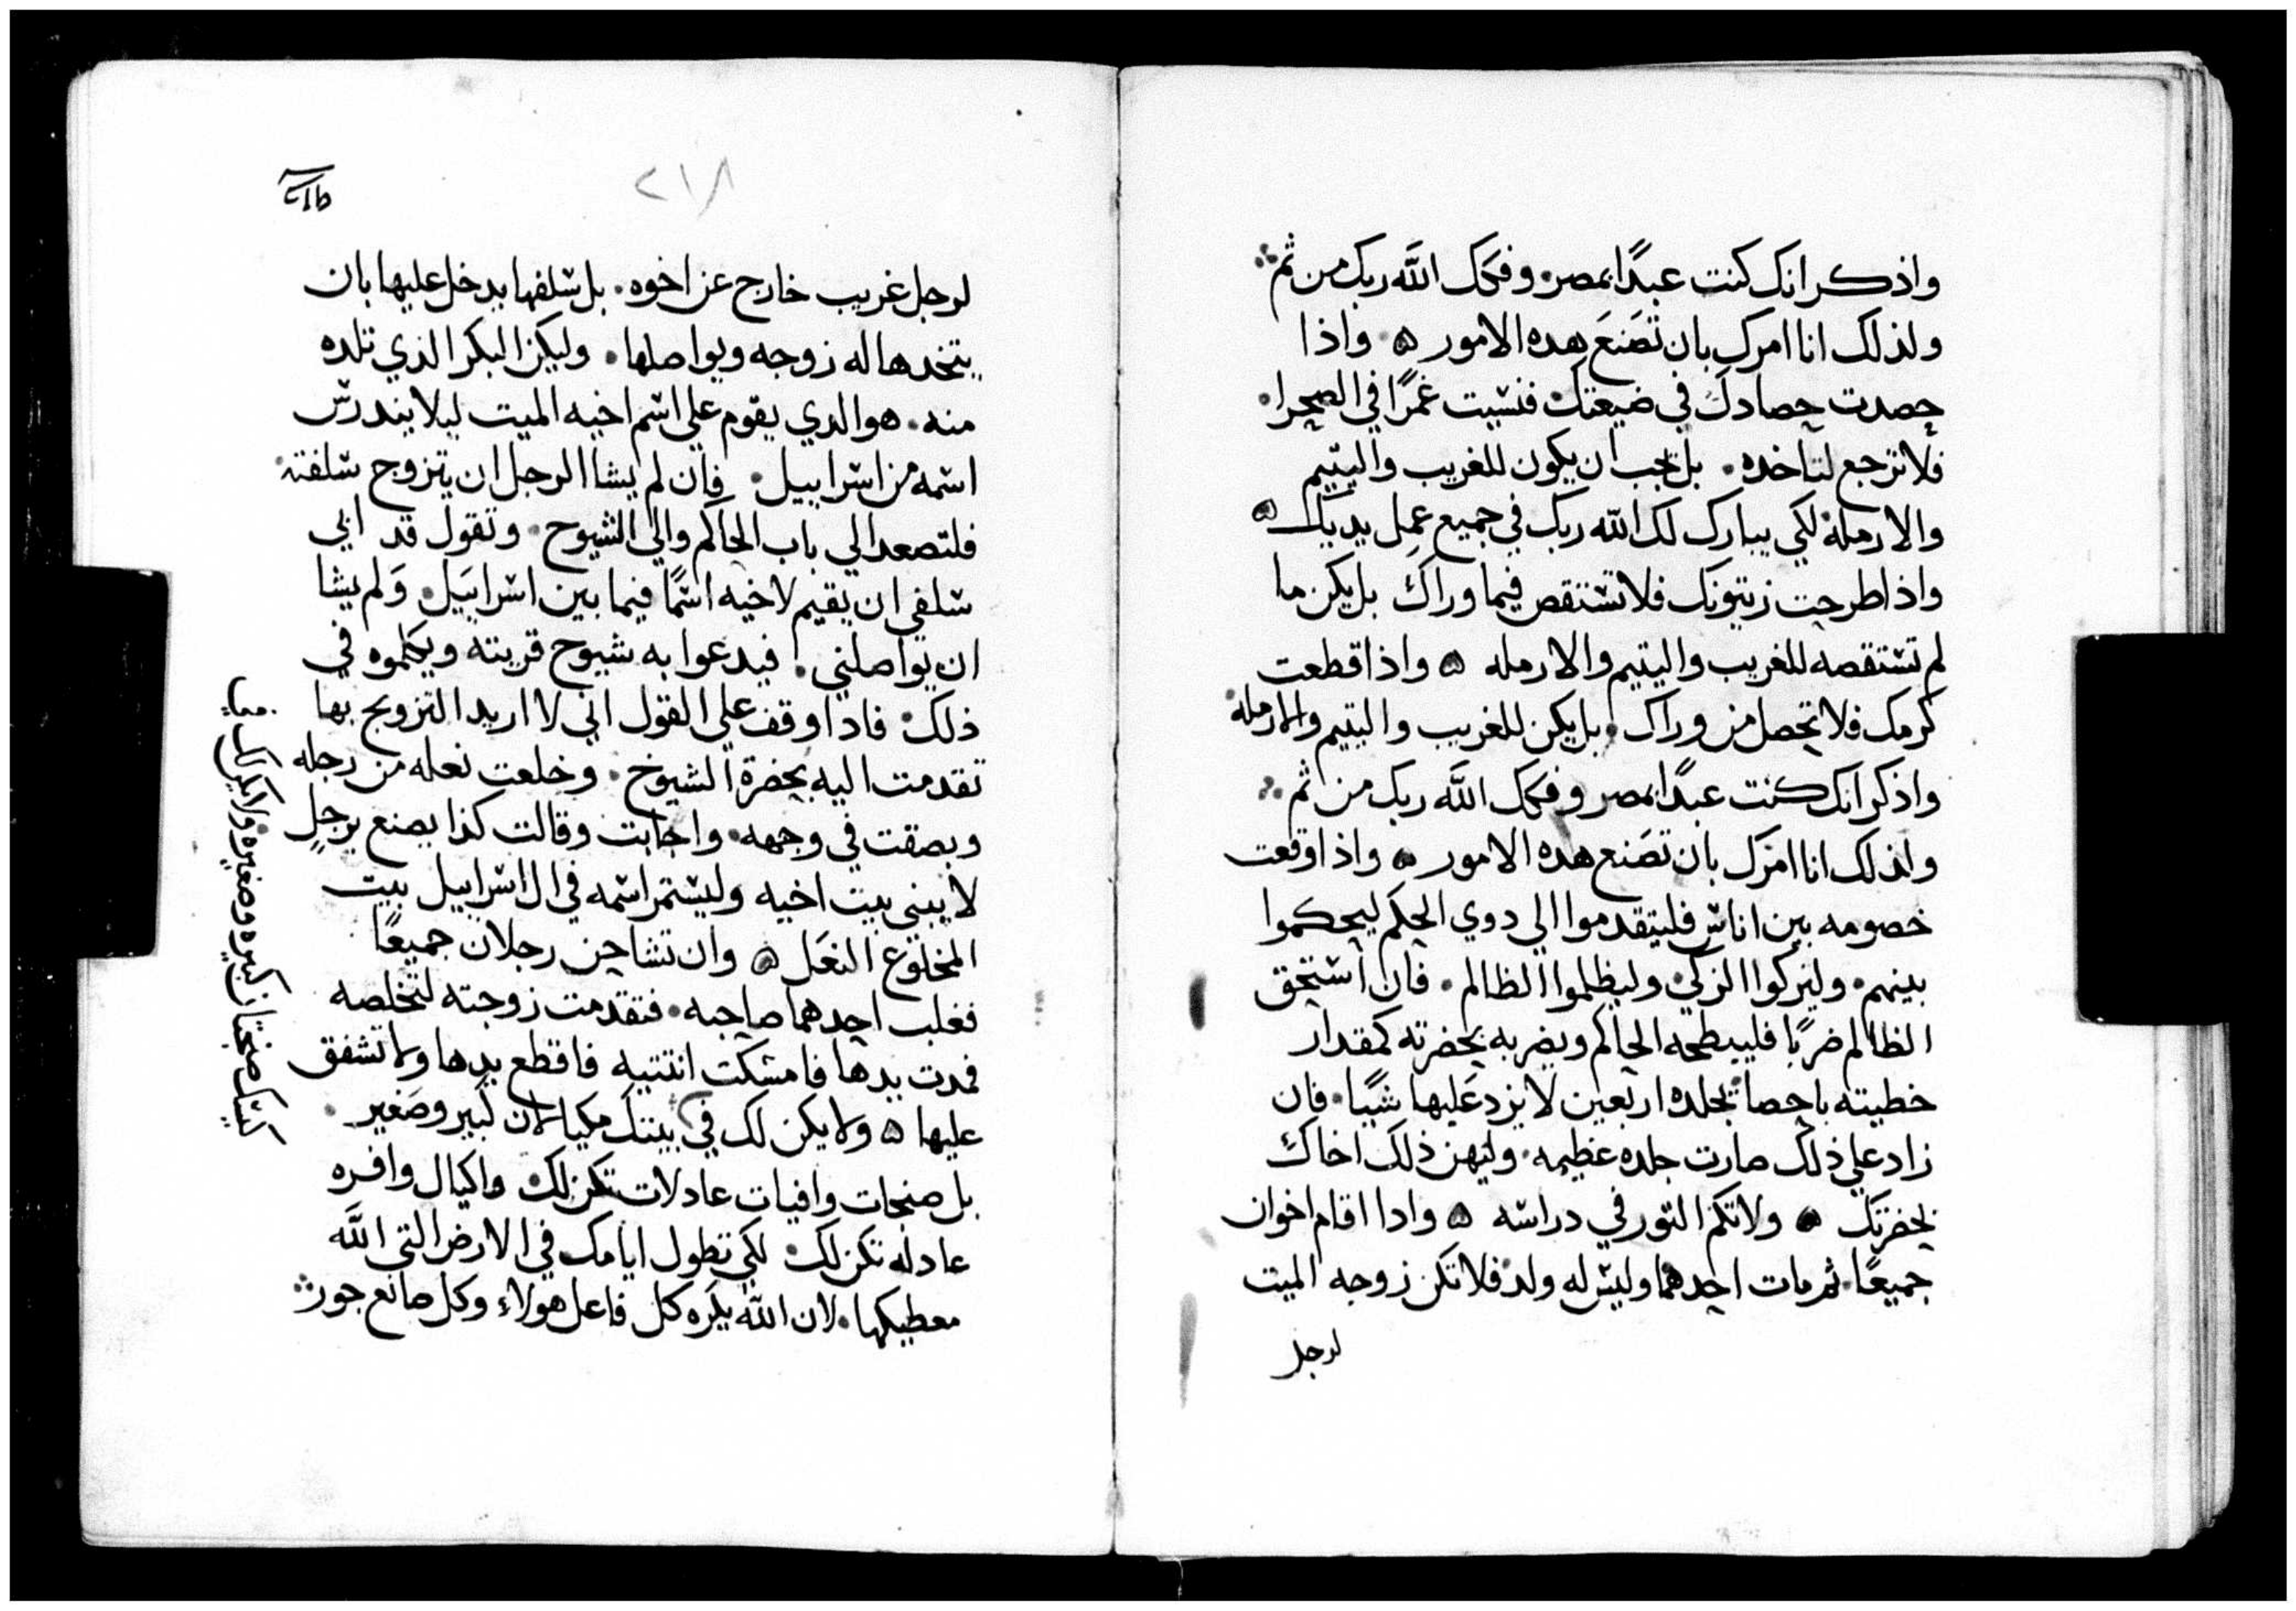 واذكر انك كنت عبدًا بمصر. وفكك الله ربك من ثم
ولذلك انا امرك بان تَصنعَ هده الامور ۞ واذا
حصدت حصادك في ضيعتك فنسيت غمرًا في الصحرا.
فلا ترجع لتاخده. بل يجب ان يكون للغريب واليتيم
والارملة لكي يبارك لك الله ربك في جميع عمل يديك ۞
واذا طرحت زيتونك فلا تستقص فيما وراك بل يكن ما
لم تستقصه للغريب واليتيم والارمله ۞ واذا قطعت
كرمك فلا تحصل من وراك. بل يكن للغريب واليتيم والارملة
واذكر انك كنت عبدًا بمصر وفكك الله ربك من ثم
ولذلك انا امرك بان تصَنع هده الامور ۞ واذا وقعت
خصومه بين اناس فليتقدموا الي دوي الحكم ليحكموا
بينهم. وليزكوا الزكي وليظلموا الظالم. فان استحق
الظالم ضربًا فليبطحه الحاكم ويضربه بحضرته كمقدار
خطيته باحصا بجلده اربعين لا يزد عَليها شيًا. فان
زاد علي ذلك صارت جلده عظيمه. وليهن ذلك اخاك
بحضرتك ۞ ولا تكم الثور في دراسه ۞ وادا اقام اخوان
جميعًا. ثم مات احدهما وليس له ولد فلا تكن زوجه الميت
لرجل
٢١٨
لرجل غريب خارج عن اخوه. بل سلفها يدخل عليها بان
يتخدها له زوجه ويواصلها. وليكن البكر الذي تلده
منه. هو الدي يقوم علي اسم اخيه الميت ليلا يندرس
اسمه من اسراييل. فان لم يشا الرجل ان يتزوج سلفته
فلتصعد الي باب الحاكم والي الشيوح. وتقول قد ابي
سلفي ان يقيم لاخيه اسمًا فيما بين اسراييَل. وَلم يشا
ان يواصلني. فيدعوا به شيوح قريته ويكلموه في
ذلك. فادا وقف علي القول اني لا اريد التزويج بها
تقدمت اليه بحضرة الشيوخ. وخلعت نعله من رجله
وبصقت في وجهه. واجابت وقالت كذا يصنع برجل
لا يبني بيت اخيه وليستمر اسمه في ال اسراييل بيت
المخلوع النعَل ۞ وان تشاجن رجلان جميعًا
فغلب احدهما صاحبه. فتقدمت زوجته لتخلصه
فمدت يدها فامسكت انتتييه فاقطع يدها ولا تشفق
عليها ۞ ولا يكن لك في بيتك مكيالان كبير وصَغير.
بل صنجات وافيات عادلات تكن لك واكيال وافره
عادله تكن لك. لكي تطول ايامك في الارض التي الله
معطيكها. لان الله يكره كل فاعل هولاءِ وكل صانع جور
كيسك صنجتان كبيره وصغيره. ولا يكن لك في